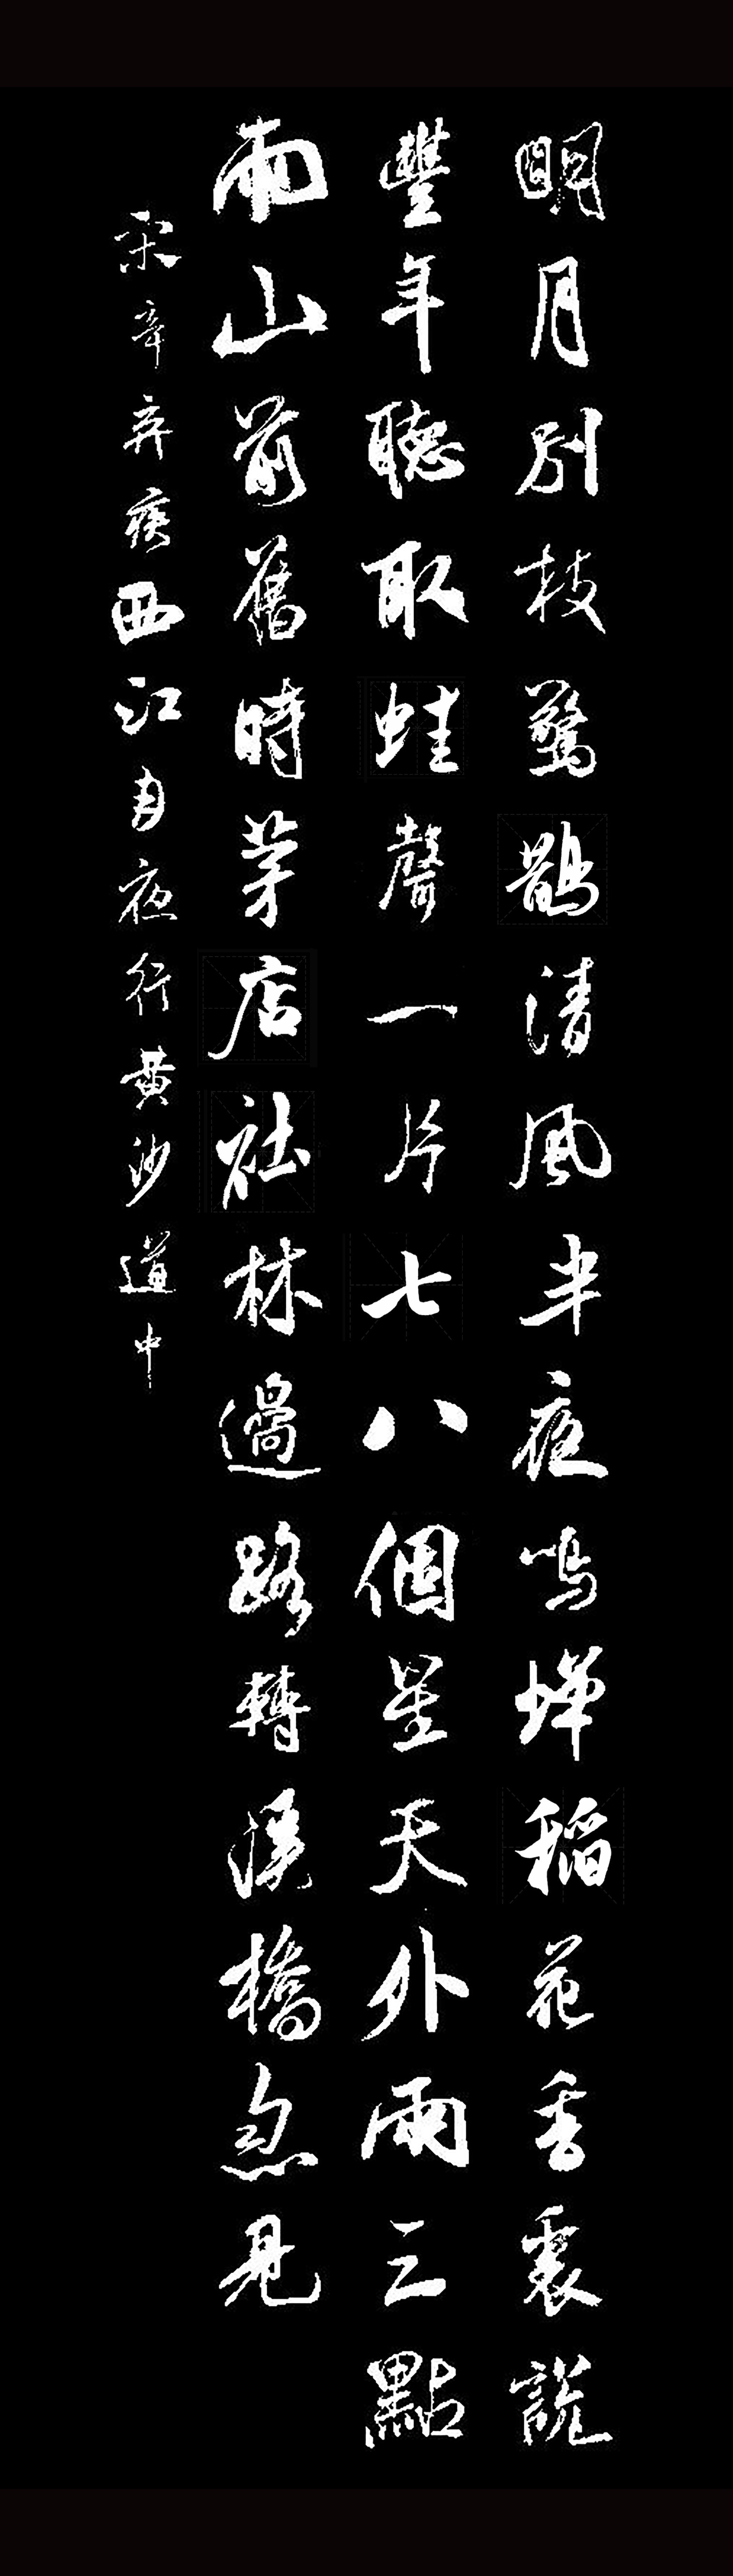 明月別枝驚鵲清風半夜鳴蟬稻花香裏說
豐年聽取蛙聲一片七八個星天外兩三點
雨山前舊時茅店社林過路轉溪橋忽見
宋辛弃疾西江月夜行黄沙道中